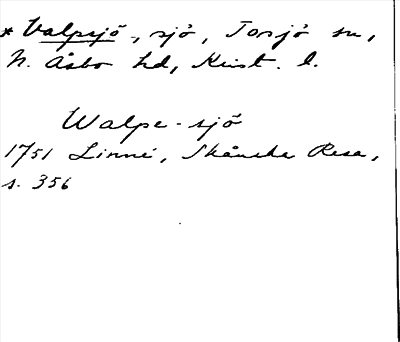 * Valpsjö, sjö, Torsjö sn,
N. Åsbo hd, Krist. l.
Walpe-sjö
1751 Linné, Skånska Resa,
s. 356